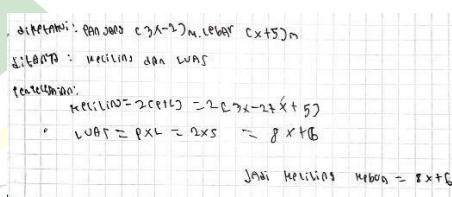 diketahui : panjang (3x-2)m. lebar (x+5)m
ditanya : keliling dan luas
penyelesaian:
keliling = 2(p+l) = 2(3x-2+x+5)
luas = pxl = 2x5 = 8x+6
Jadi keliling kebun = 8x+6